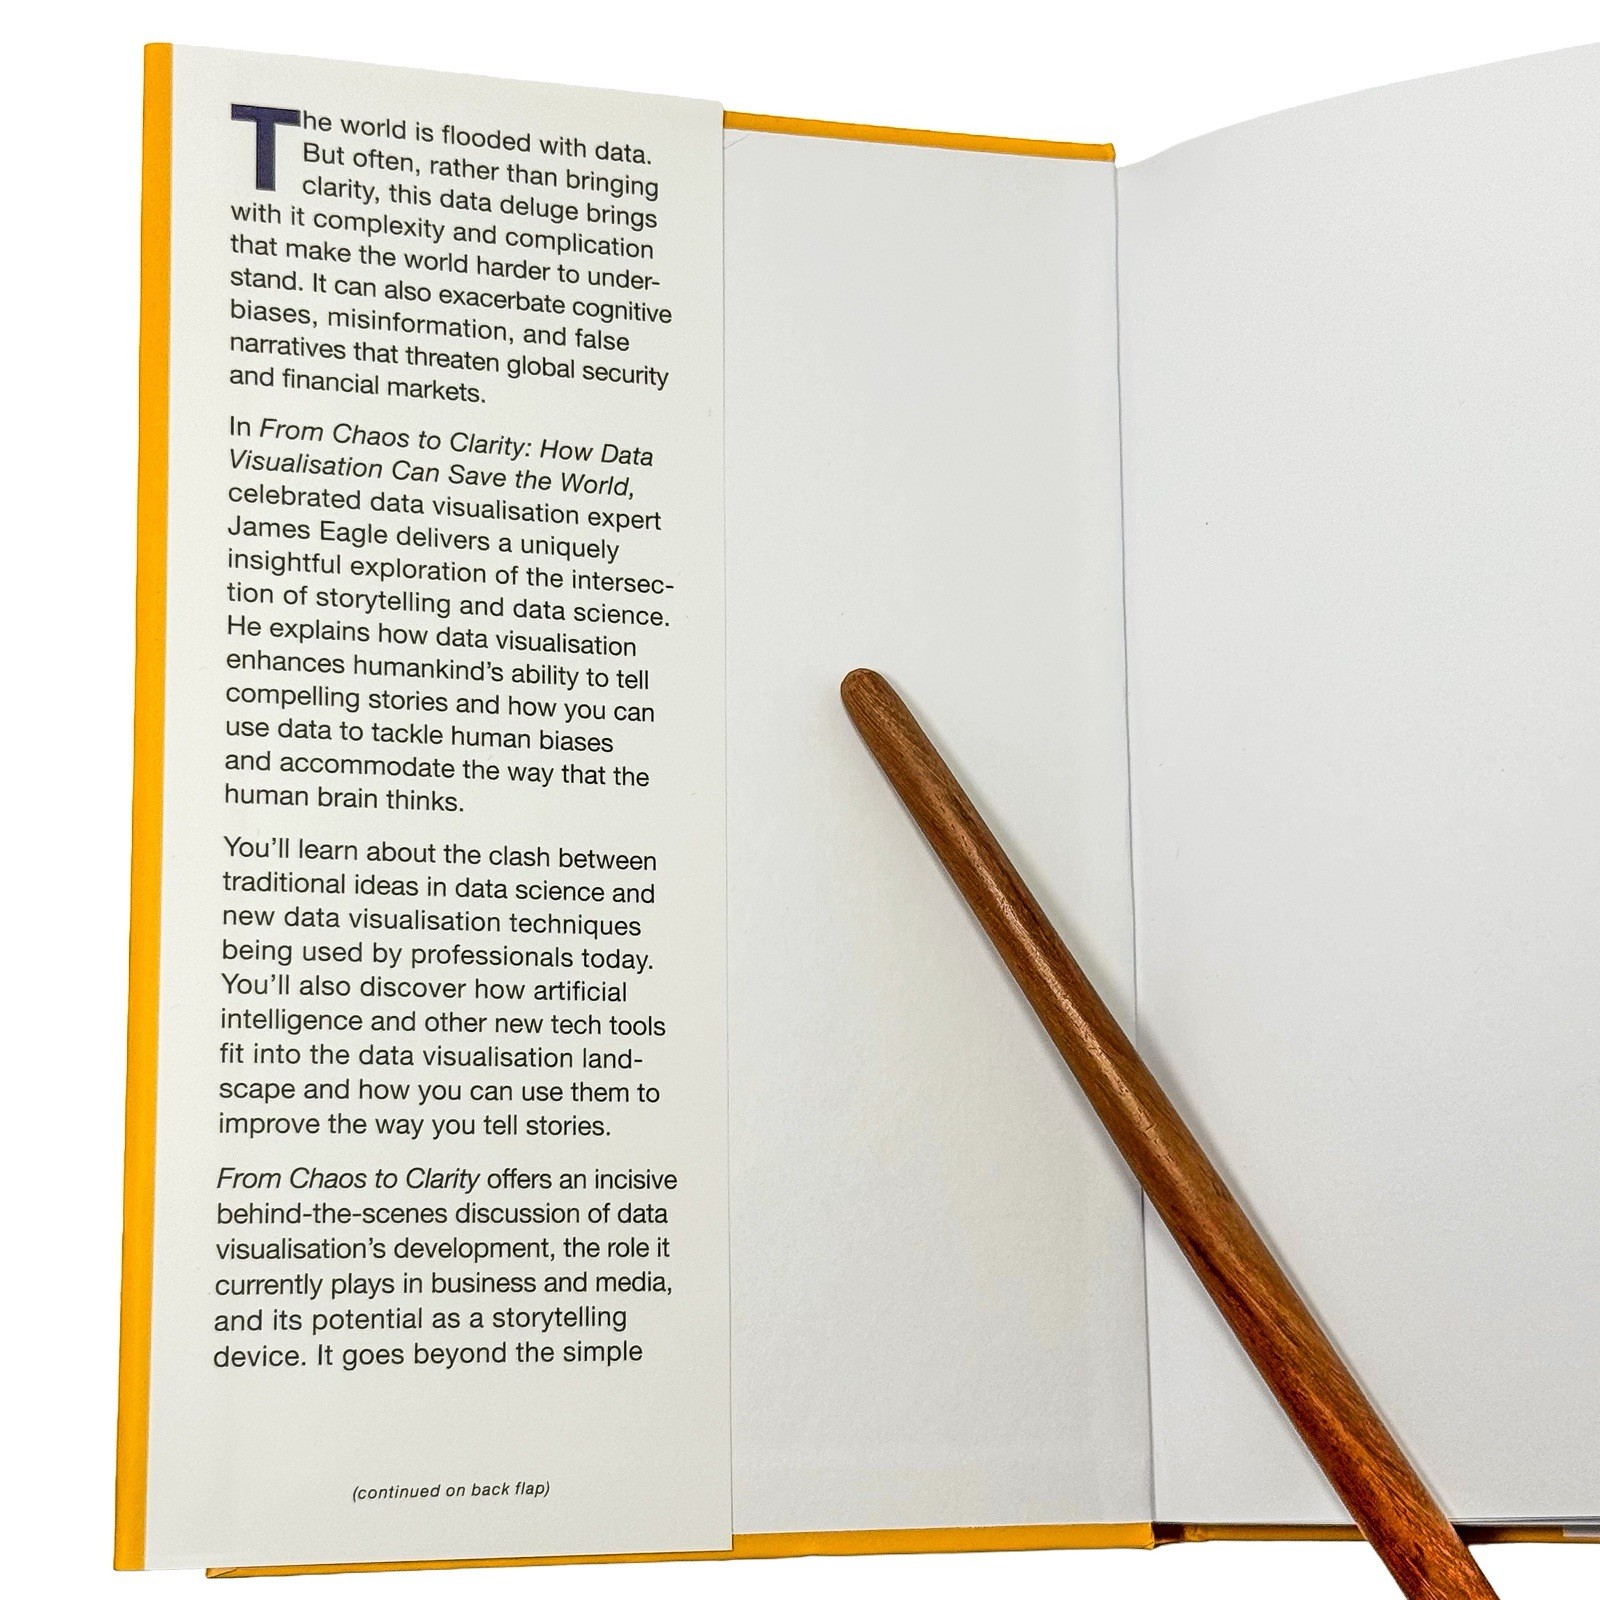 The world is flooded with data.
But often, rather than bringing
clarity, this data deluge brings
with it complexity and complication
that make the world harder to under-
stand. It can also exacerbate cognitive
biases, misinformation, and false
narratives that threaten global security
and financial markets.
In From Chaos to Clarity: How Data
Visualisation Can Save the World,
celebrated data visualisation expert
James Eagle delivers a uniquely
insightful exploration of the intersec-
tion of storytelling and data science.
He explains how data visualisation
enhances humankind's ability to tell
compelling stories and how you can
use data to tackle human biases
and accommodate the way that the
human brain thinks.
You'll learn about the clash between
traditional ideas in data science and
new data visualisation techniques
being used by professionals today.
You'll also discover how artificial
intelligence and other new tech tools
fit into the data visualisation land-
scape and how you can use them to
improve the way you tell stories.
From Chaos to Clarity offers an incisive
behind-the-scenes discussion of data
visualisation's development, the role it
currently plays in business and media,
and its potential as a storytelling
device. It goes beyond the simple
(continued on back flap)